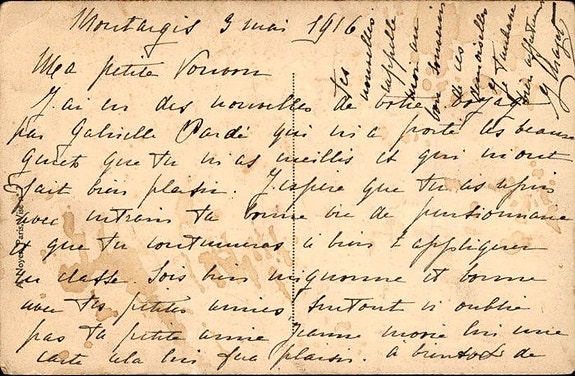 Montargis 3 mai 1916
Ma petite Vonvon
J'ai eu des nouvelles de votre voyage
par Gabrielle Pardé qui m'a porté les beaux
que tu m'as cueillis et qui m'ont
fait bien plaisir. J'espère que tu as repris
avec entrain ta bonne vie de pensionnaire
et que tu continueras à bien t'appliquer
en classe. Sois bien mignonne et bonne
avec tes petites amies surtout n'oublie
pas ta petite amie Jeanne Marie une
carte ça plaisir. à bientôt de
tes
nouvelles
rappelle
moi au
bon souvenir
de ces
demoiselles